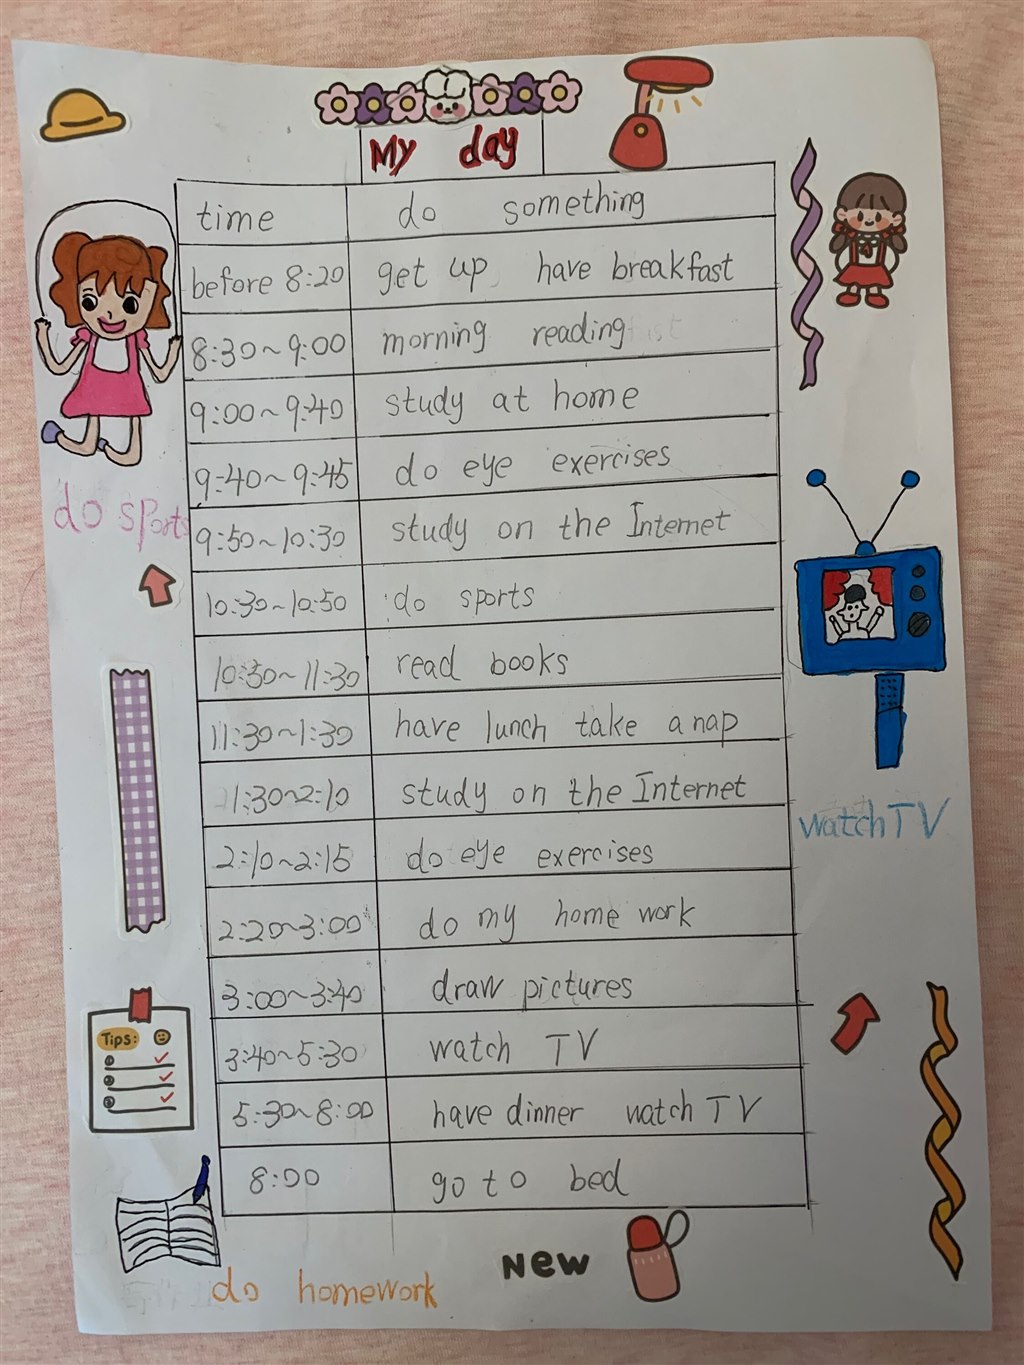 My day
time do something
before 8:20 get up have breakfast
8:30~9:00 morning reading
9:00~9:40 study at home
9:40~9:45 do eye exercises
9:50~10:30 study on the Internet
10:30~10:50 do sports
10:50~11:30 read books
11:30~1:30 have lunch take a nap
1:30~2:10 study on the Internet
2:10~2:15 do eye exercises
2:20~3:00 do my home work
3:00~3:40 draw pictures
3:40~5:30 watch TV
5:30~8:00 have dinner watch TV
8:00 go to bed
do sports
watch TV
Tips:
1
2
3
do homework
New